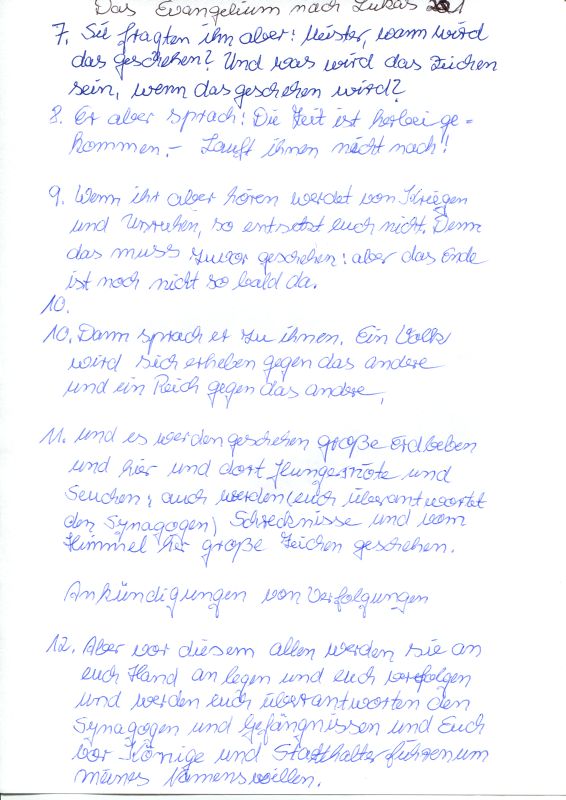 Das Evangelium nach Lukas 21
7. Sie fragten ihn aber: Meister, wann wird
das geschehen? Und was wird das Zeichen
sein, wenn das geschehen wird?
8. Er aber sprach: Die Zeit ist herbei ge=
kommen. - Lauft ihnen nicht nach!
9. Wenn ihr aber hören werdet von Kriegen
und Unruhen, so entsetzt euch nicht. Denn
das muss zuvor geschehen: aber das Ende
ist noch nicht so bald da.
10.
10. Dann sprach er zu ihnen. Ein Volk
wird sich erheben gegen das andere
und ein Reich gegen das andere,
11. und es werden geschehen große Erdbeben
und hier und dort Hungersnöte und
Seuchen, auch werden (euch überantwortet
den Synagogen) Schrecknisse und vom
Himmel her große Zeichen geschehen.
Ankündigungen von Verfolgungen
12. Aber vor diesem allen werden sie an
euch Hand anlegen und euch verfolgen
und werden euch überantworten den
Synagogen und Gefängnissen und Euch
vor Könige und Statthalter führen um
meines Namens willen.